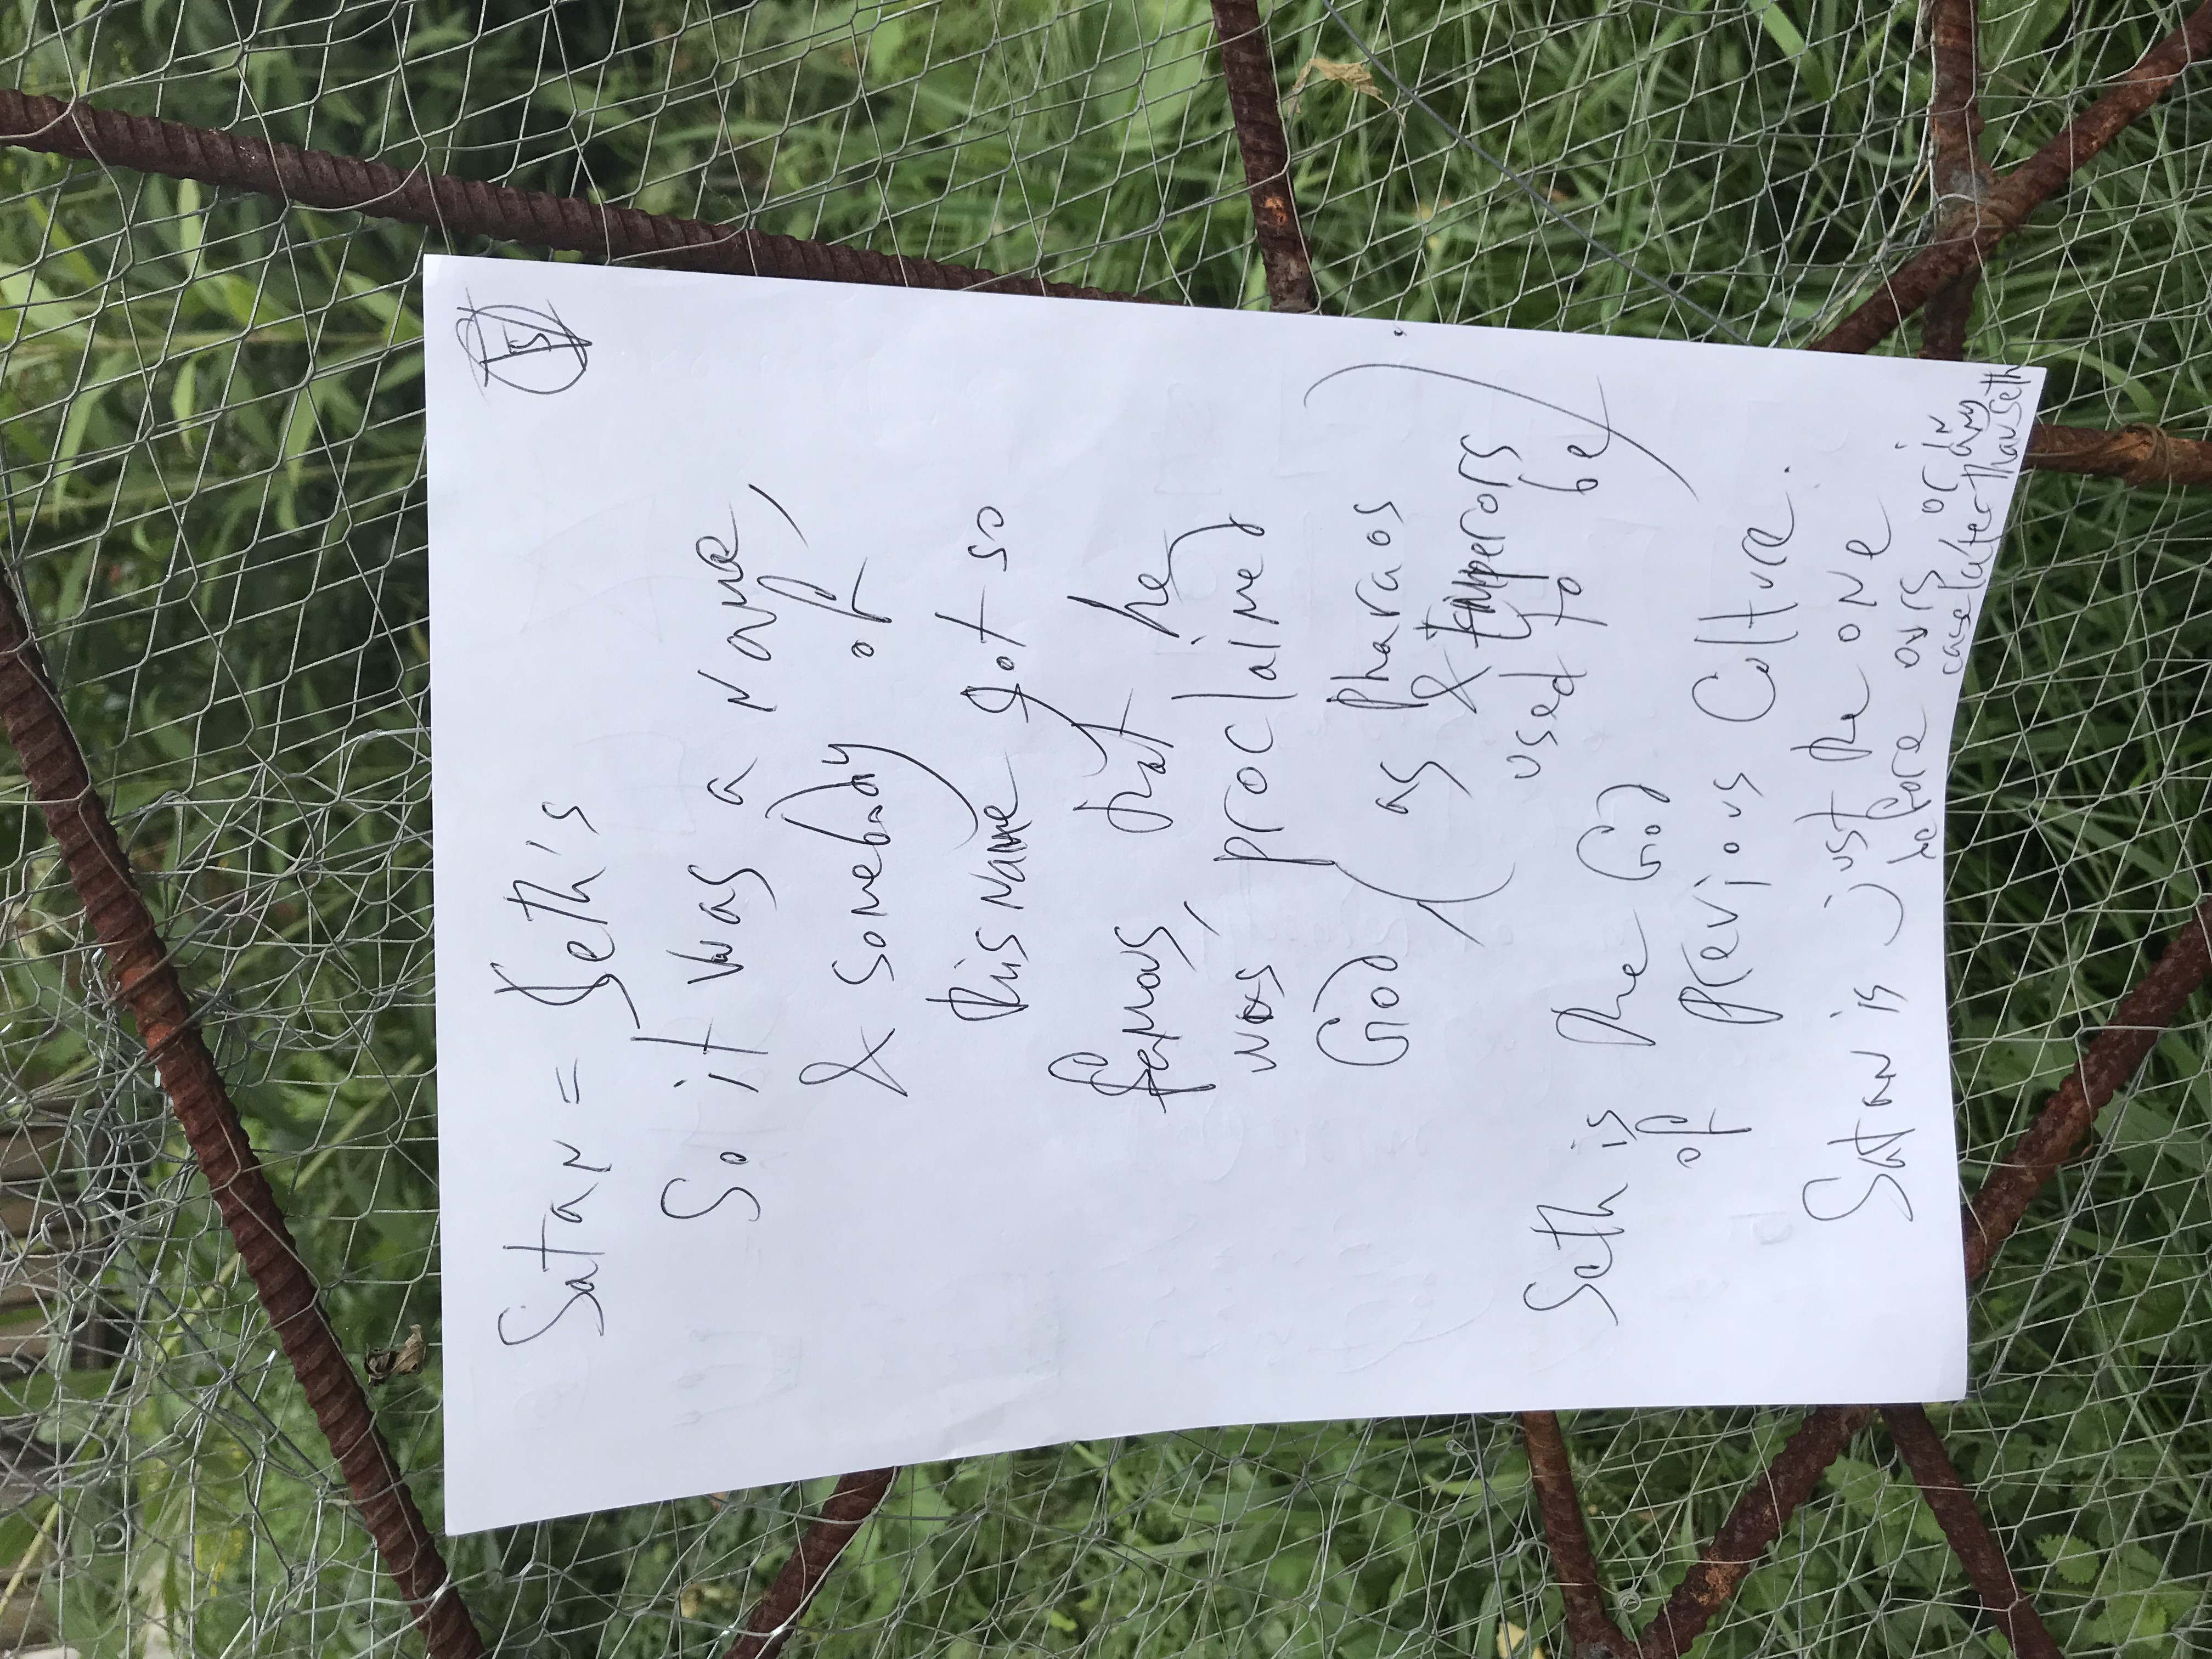 Satan = Seth's
So it was a name,
& somebody of
this name got so
famous, that he
was proclaimed
God, (as Pharaos
& Emperors
used to be).
Seth is the God
of previous Culture.
Satan is just the one
before ours, or in
any
case later than Seth